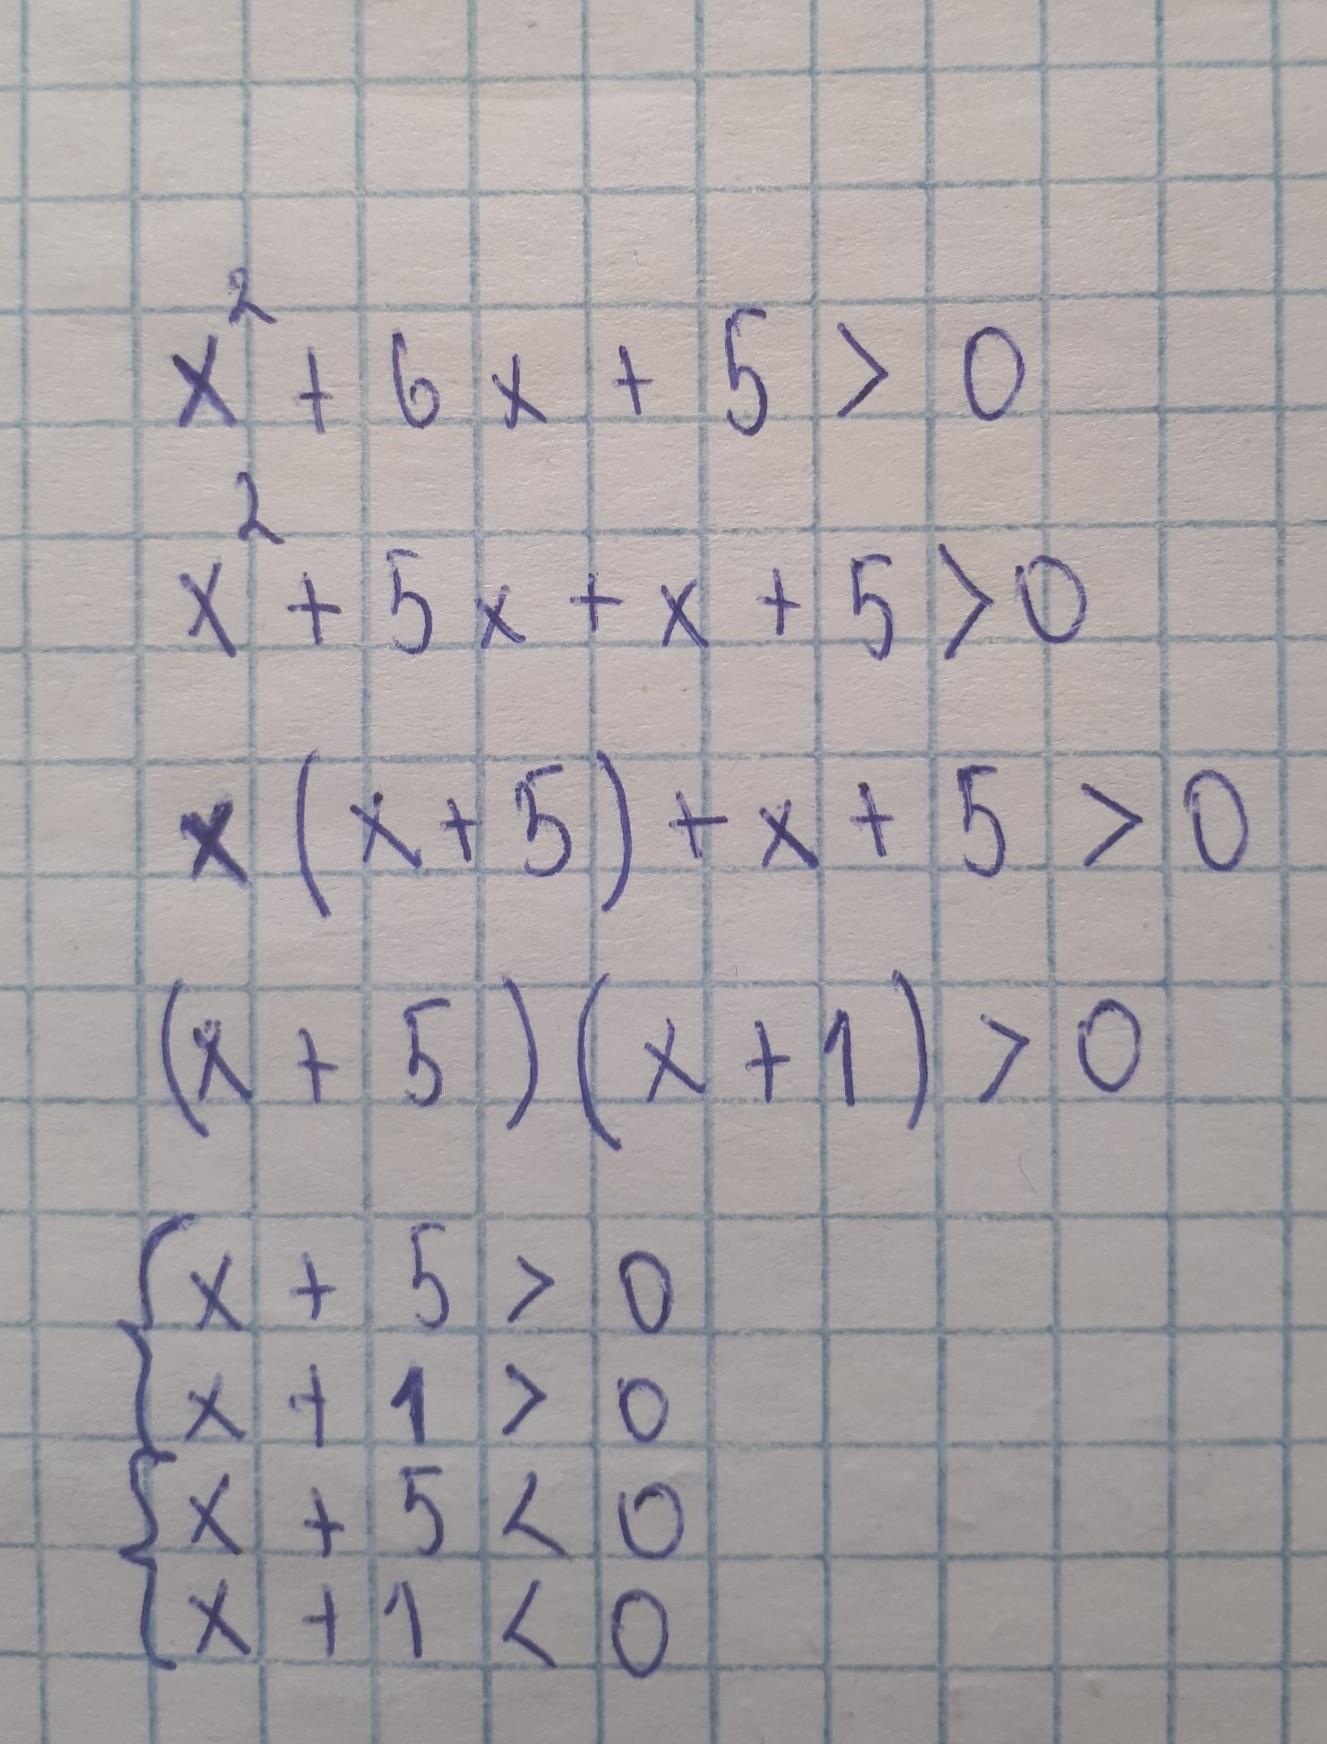 x² + 6x + 5 > 0
x² + 5x + x + 5 > 0
x(x+5) + x + 5 > 0
(x + 5)(x + 1) > 0
{ x + 5 > 0
x + 1 > 0
{ x + 5 < 0
x + 1 < 0